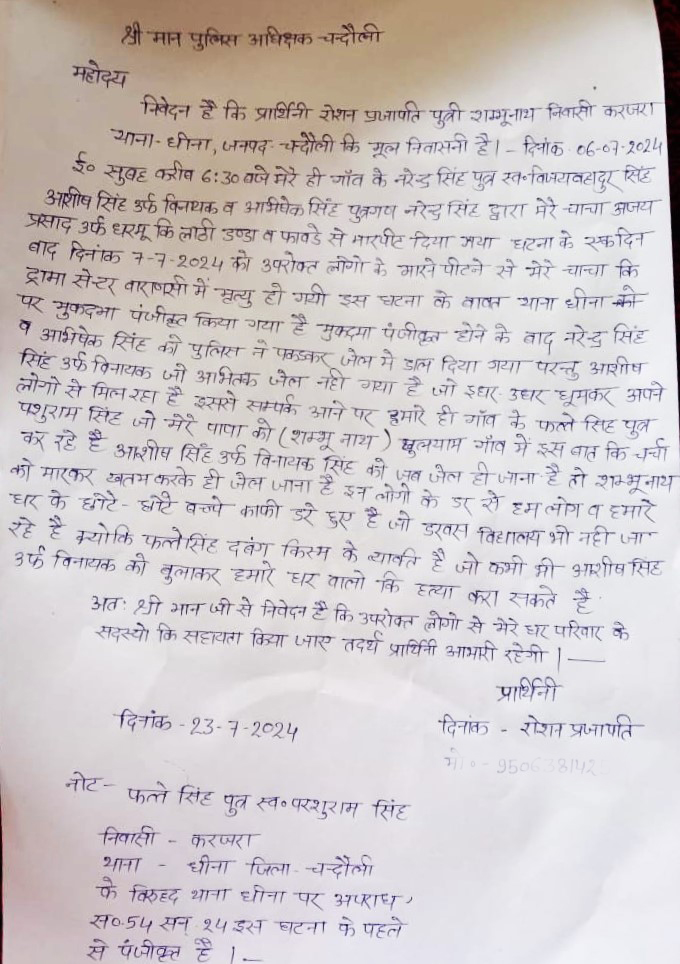 श्री मान पुलिस अधिक्षक चन्दौली
महोदय
निवेदन है कि प्रार्थिनी रोशन प्रजापति पुत्री शम्भूनाथ निवासी करजरा
थाना- धीना, जनपद- चन्दौली कि मूल निवासनी है। - दिनांक 06-07-2024
ई० सुबह करीब 6:30 बजे मेरे ही गाँव के नरेन्द्र सिंह पुत्र स्व० विजयबहादुर सिंह
आशीष सिंह उर्फ विनायक व अभिषेक सिंह पुत्रगण नरेन्द्र सिंह द्वारा मेरे चाचा अजय
प्रसाद उर्फ धरमू कि लाठी डण्डा व फावडे से मारपीट दिया गया घटना के एक दिन
बाद दिनांक 7-7-2024 को उपरोक्त लोगो के मारने पीटने से मेरे चाचा कि
ट्रामा सेन्टर वाराणसी में मृत्यु हो गयी इस घटना के बावत थाना धीना
पर मुकदमा पंजीकृत किया गया है मुकदमा पंजीकृत होने के बाद नरेन्द्र सिंह
व अभिषेक सिंह को पुलिस ने पकडकर जेल मे डाल दिया गया परन्तु आशीष
सिंह उर्फ विनायक जो अभितक जेल नही गया है जो इधर-उधर घूमकर अपने
लोगो से मिल रहा है इससे सम्पर्क आने पर हमारे ही गाँव के फत्ते सिंह पुत्र
पशुराम सिंह जो मेरे पापा को (शम्भू नाथ) खुलेयाम गाँव में इस बात कि चर्चा
कर रहे है आशीष सिंह उर्फ विनायक सिंह को जब जेल ही जाना है तो शम्भूनाथ
को मारकर खतम करके ही जेल जाना है इन लोगो के डर से हम लोग व हमारे
घर के छोटे-छोटे बच्चे काफी डरे हुए है जो डरवस विद्यालय भी नही जा
रहे है क्योकि फत्तेसिंह दबंग किस्म के व्यक्ति है जो कभी भी आशीष सिंह
उर्फ विनायक को बुलाकर हमारे घर वालो कि हत्या करा सकते है
अतः श्री मान जी से निवेदन है कि उपरोक्त लोगो से मेरे घर परिवार के
सदस्यो कि सहायता किया जाए तदर्थ प्रार्थिनी आभारी रहेगी।—
प्रार्थिनी
दिनांक -23-7-2024
दिनांक - रोशन प्रजापति
मो०-
नोट- फत्ते सिंह पुत्र स्व० परशुराम सिंह
निवासी - करजरा
थाना - धीना जिला- चन्दौली
के विरुद्द थाना धीना पर अपराध
स० 54 सन् 24 इस घटना के पहले
से पंजीकृत है।—